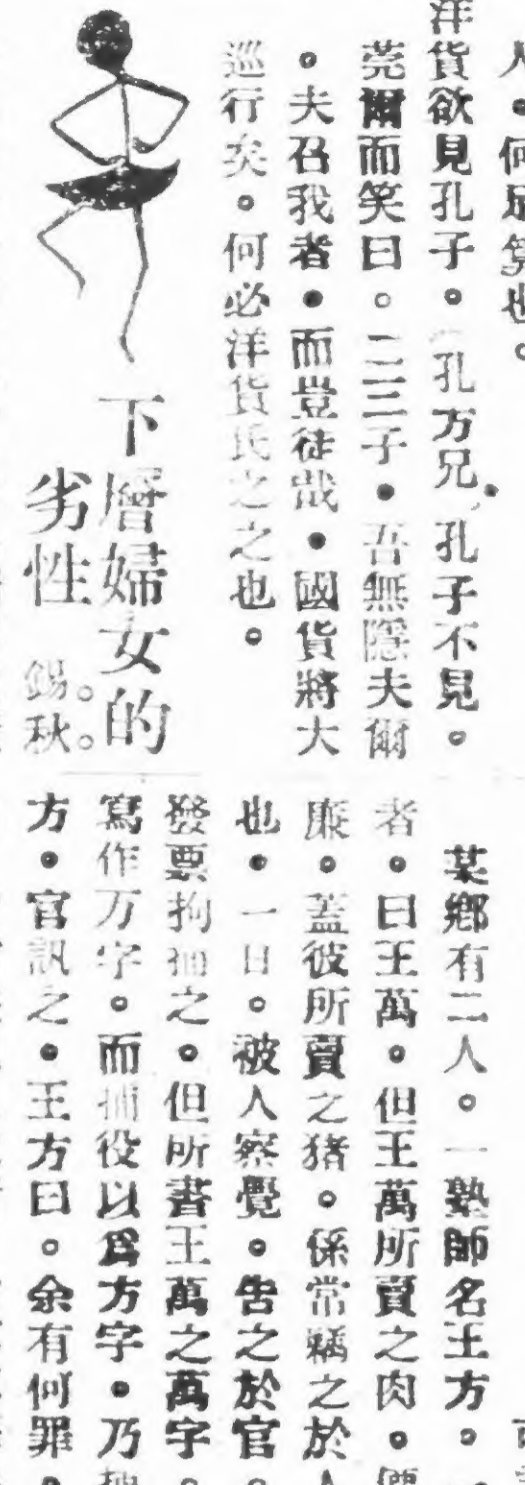 人。何足算也。
洋貨欲見孔子。(孔方兄)孔子不見。
莞爾而笑曰。二三子。吾無隱夫爾
。夫召我者。而豈徒哉。國貨將大
巡行矣。何必洋貨氏之之也。
下層婦女的
劣性
錫秋。。
某鄉有二人。一塾師名王方。
者。曰王萬。但王萬所賣之肉。
廉。蓋彼所賣之猪。係常竊之於
也。一日。被人察覺。告之於官。
發票拘捕之。但所書王萬之萬字。
寫作万字。而捕役以爲方字。乃
方。官訊之。王方曰。余有何罪。